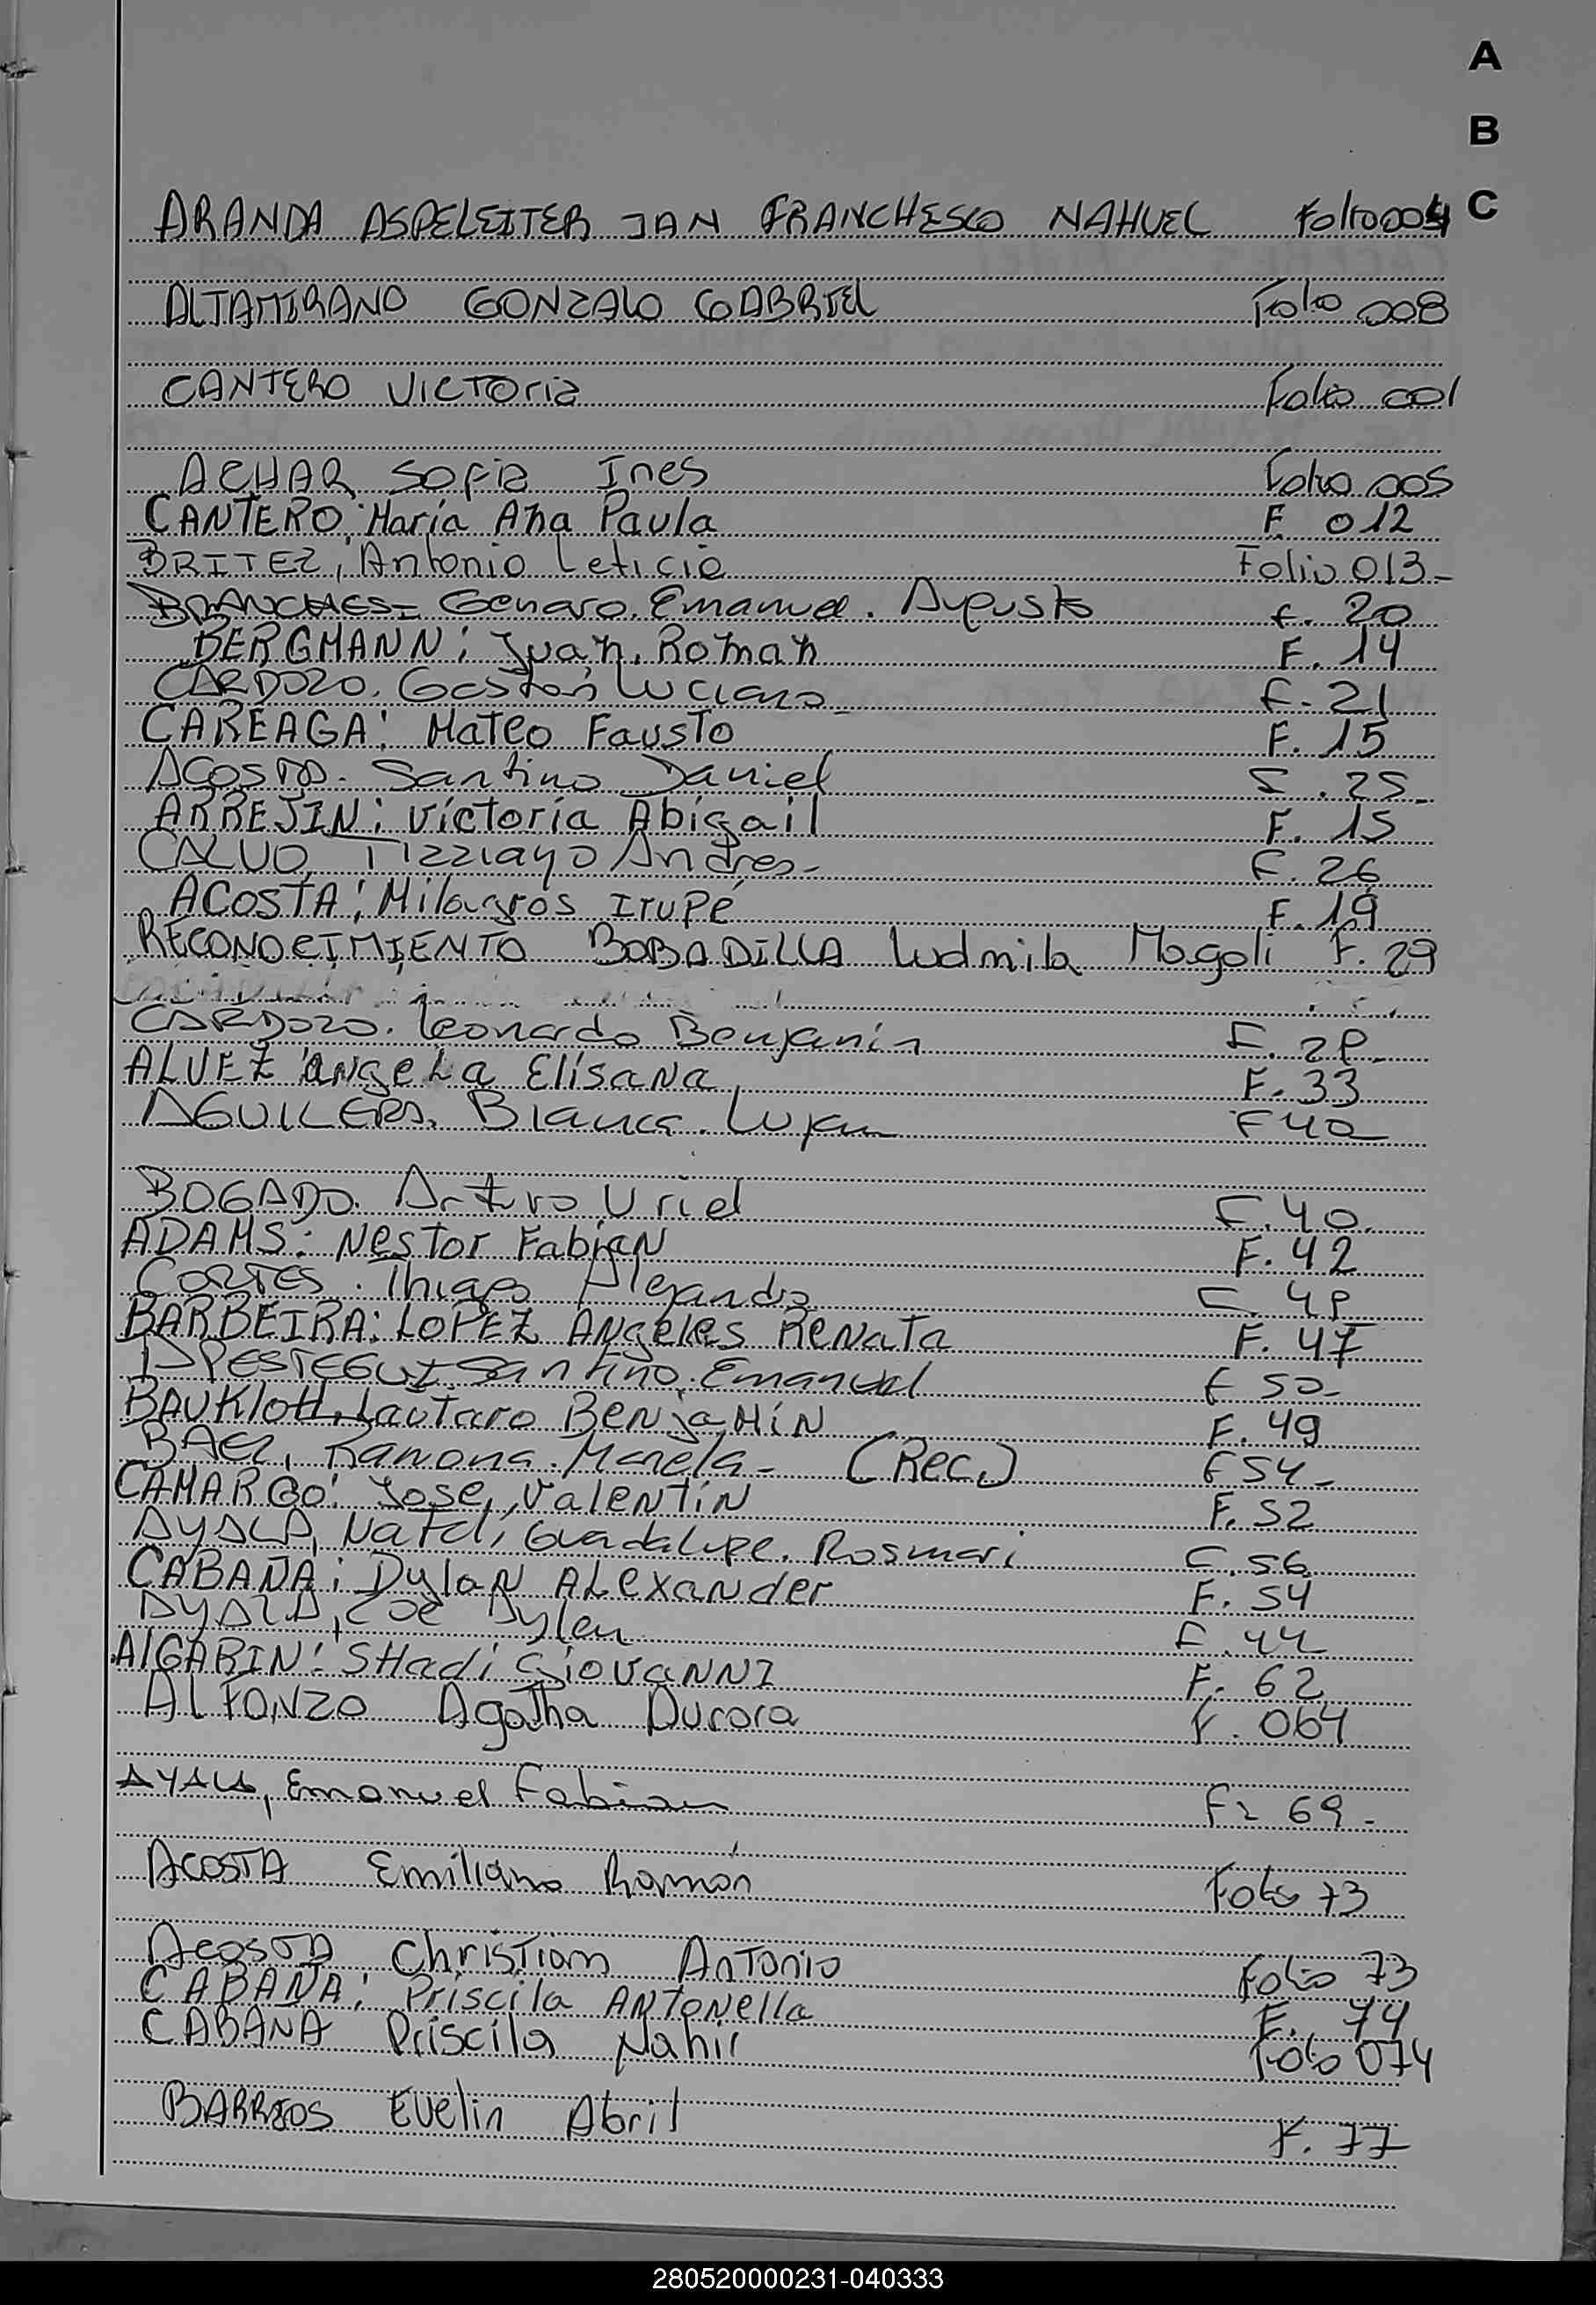 A
B
C
ARANDA ASPELEITER JAN FRANCHESCO NAHUEL Folio 004
ALTAMIRANO GONZALO GABRIEL Folio 008
CANTERO VICTORIA Folio 001
ACHAR SOFIA Ines Folio 005
CANTERO: María Ana Paula F. 012
BRITEZ, Antonio Leticia Folio 013-
BRANCHES- Genaro. Emanuel. Augusto F. 20
BERGMANN: Juan. Roman F. 14
CARDOZO. Gastón Luciano- F. 21
CAREAGA: Mateo Fausto F. 15
ACOSTA. Santino Daniel F. 25-
ARREJIN: Victoria Abigail F. 15
CALVO, Tizziano Andres- F. 26
ACOSTA: Milagros Irupé F. 19
RECONOCIMIENTO BOBADILLA Ludmila Magali F. 29
CARDOZO. Leonardo Benjamín F. 28-
ALVEZ Angela Elisana F. 33
AGUILERA. Blanca. Lujan F 40
BOGADO. Arturo Uriel F. 40.
ADAMS: Nestor Fabian F. 42
CORTES. Thiago Alejandro F. 48
BARBEIRA: LOPEZ ANgeles ReNata F. 47
Santino. Emanuel F 50-
BAUKlott, Lautaro BeNjaMíN F. 49
BAEZ, Ramona. Mariela- (Rec.) F 54-
CAMARGO: Jose, ValeNtiN F. 52
AYALA, Natali, Guadalupe. Rosmari F. 56
CABAÑA: DylaN ALexander F. 54
AYALA, Zoe Aylen F. 44
AlGARIN: SHadi GiovaNNI F. 62
ALFONZO Agatha Aurora F. 064
AYALA, Emanuel Fabian F= 69-
ACOSTA Emiliano Ramón Folio 73
ACOSTA Christiam Antonio Folio 73
CABAÑA: Priscila ANTONella F. 74
CABAÑA Priscila Nahir Folio 074
BARRIOS Evelin Abril F. 77
280520000231-040333